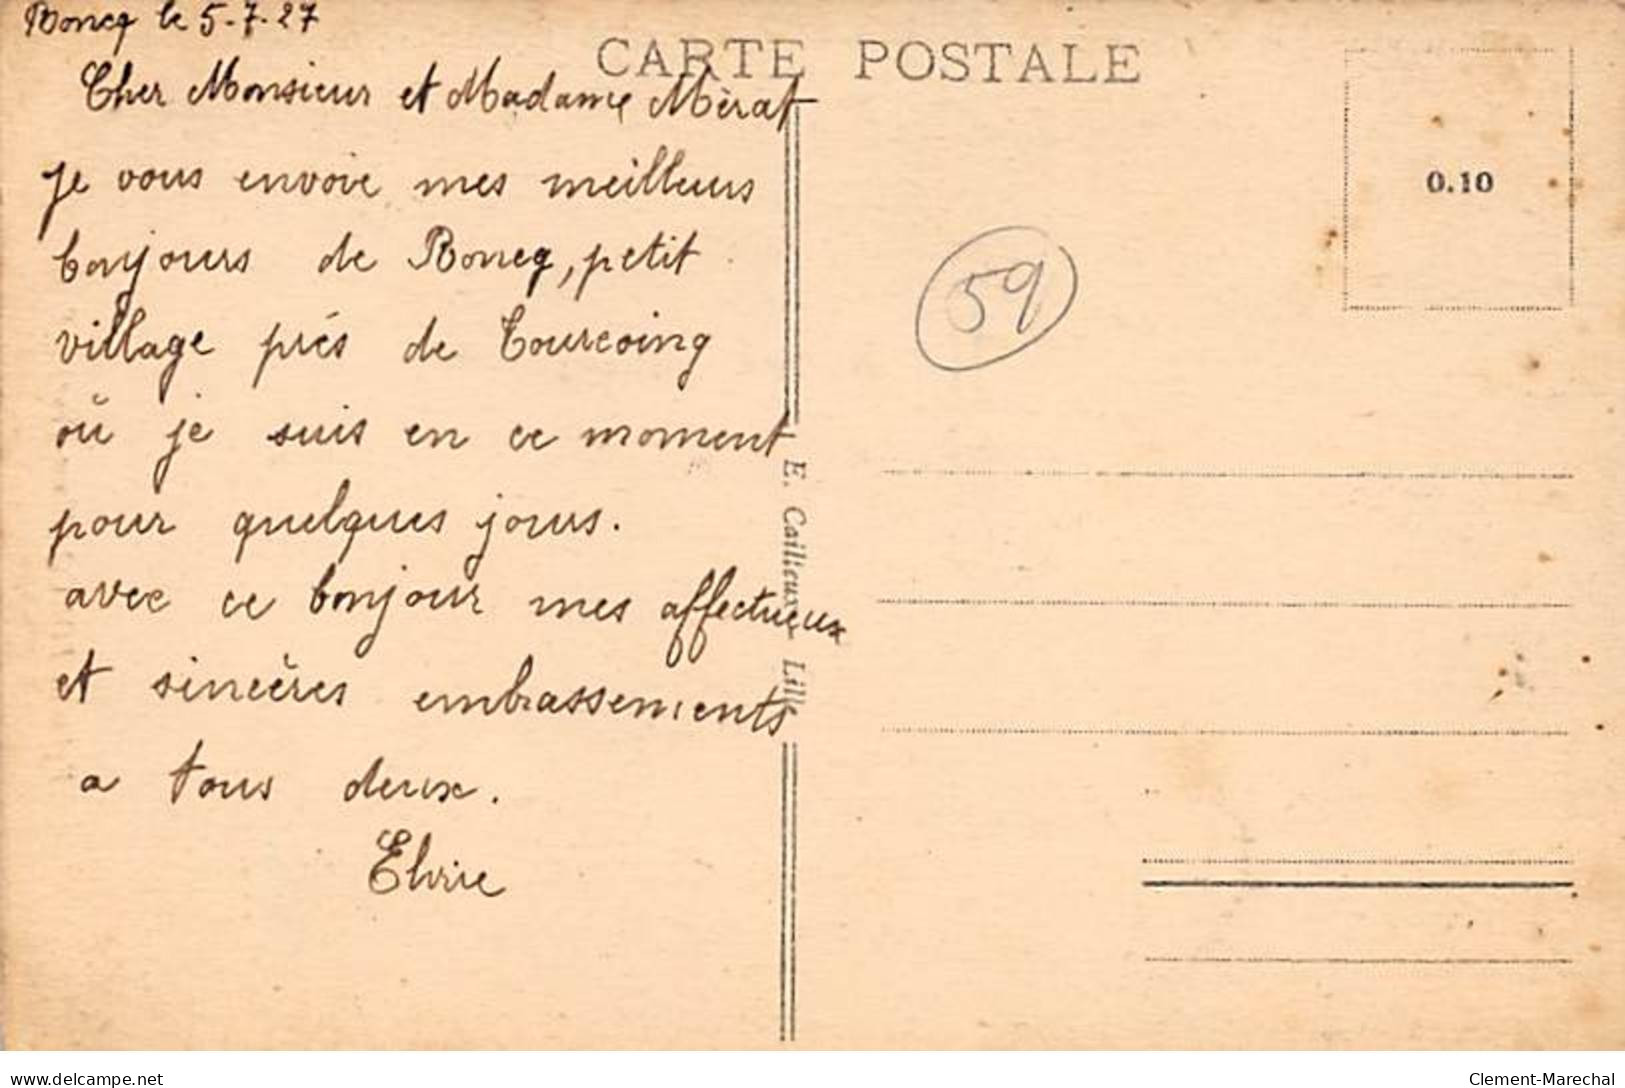 Roncq le 5-7-27
CARTE POSTALE
Cher Monsieur et Madame Mèrat
je vous envoie mes meilleurs
bonjours de Roncq, petit
village prés de Tourcoing
où je suis en ce moment
pour quelques jours.
avec ce bonjour mes affectueux
et sincères embrassements
a tous deux.
Elvire
E. Cailleux, Lille
0.10
59
www.delcampe.net
Clement-Marechal